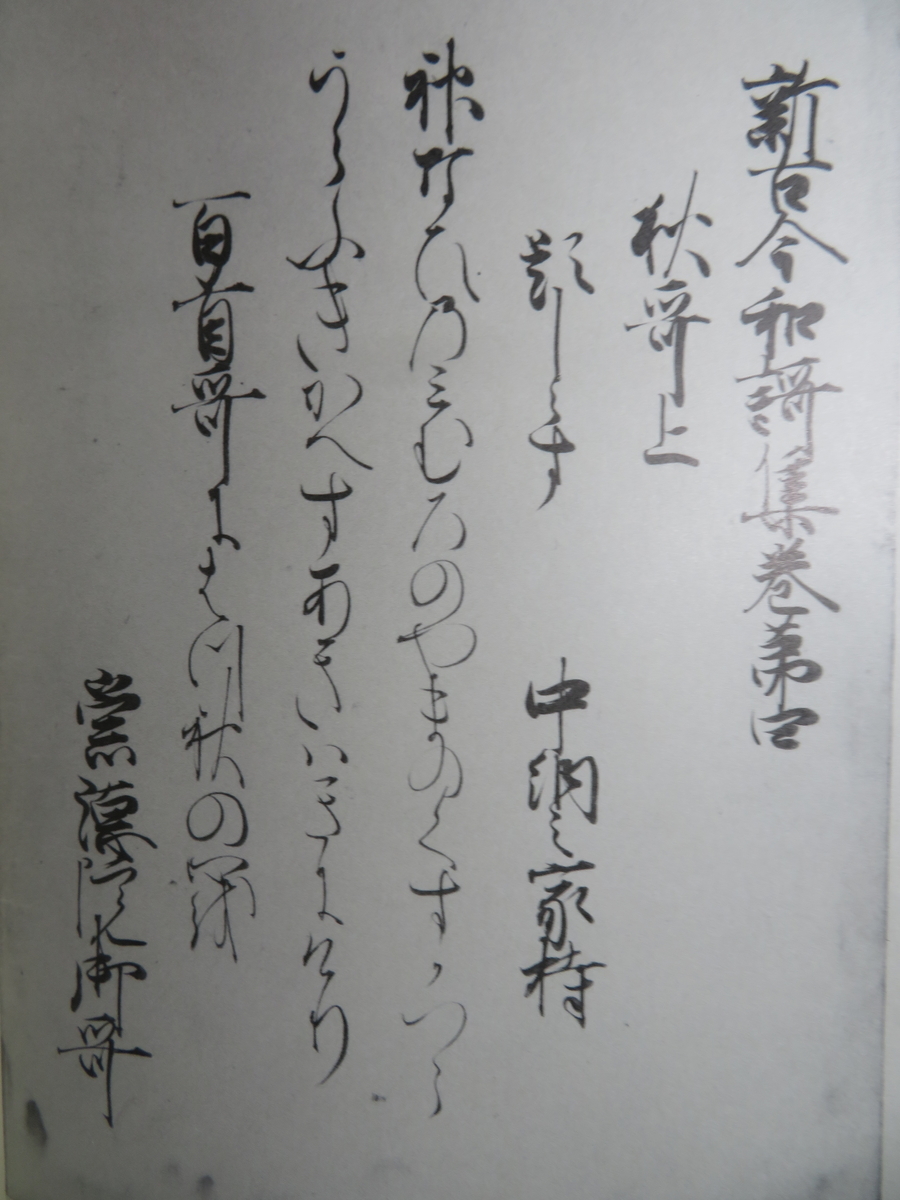 新古今和謌集巻第四
秋哥上
題しらす
中納言家持
神なひ乃三むろのやまのくすかつら
うらふきかへすあきはきにけり
百首哥にはつ秋の心を
崇徳院御哥